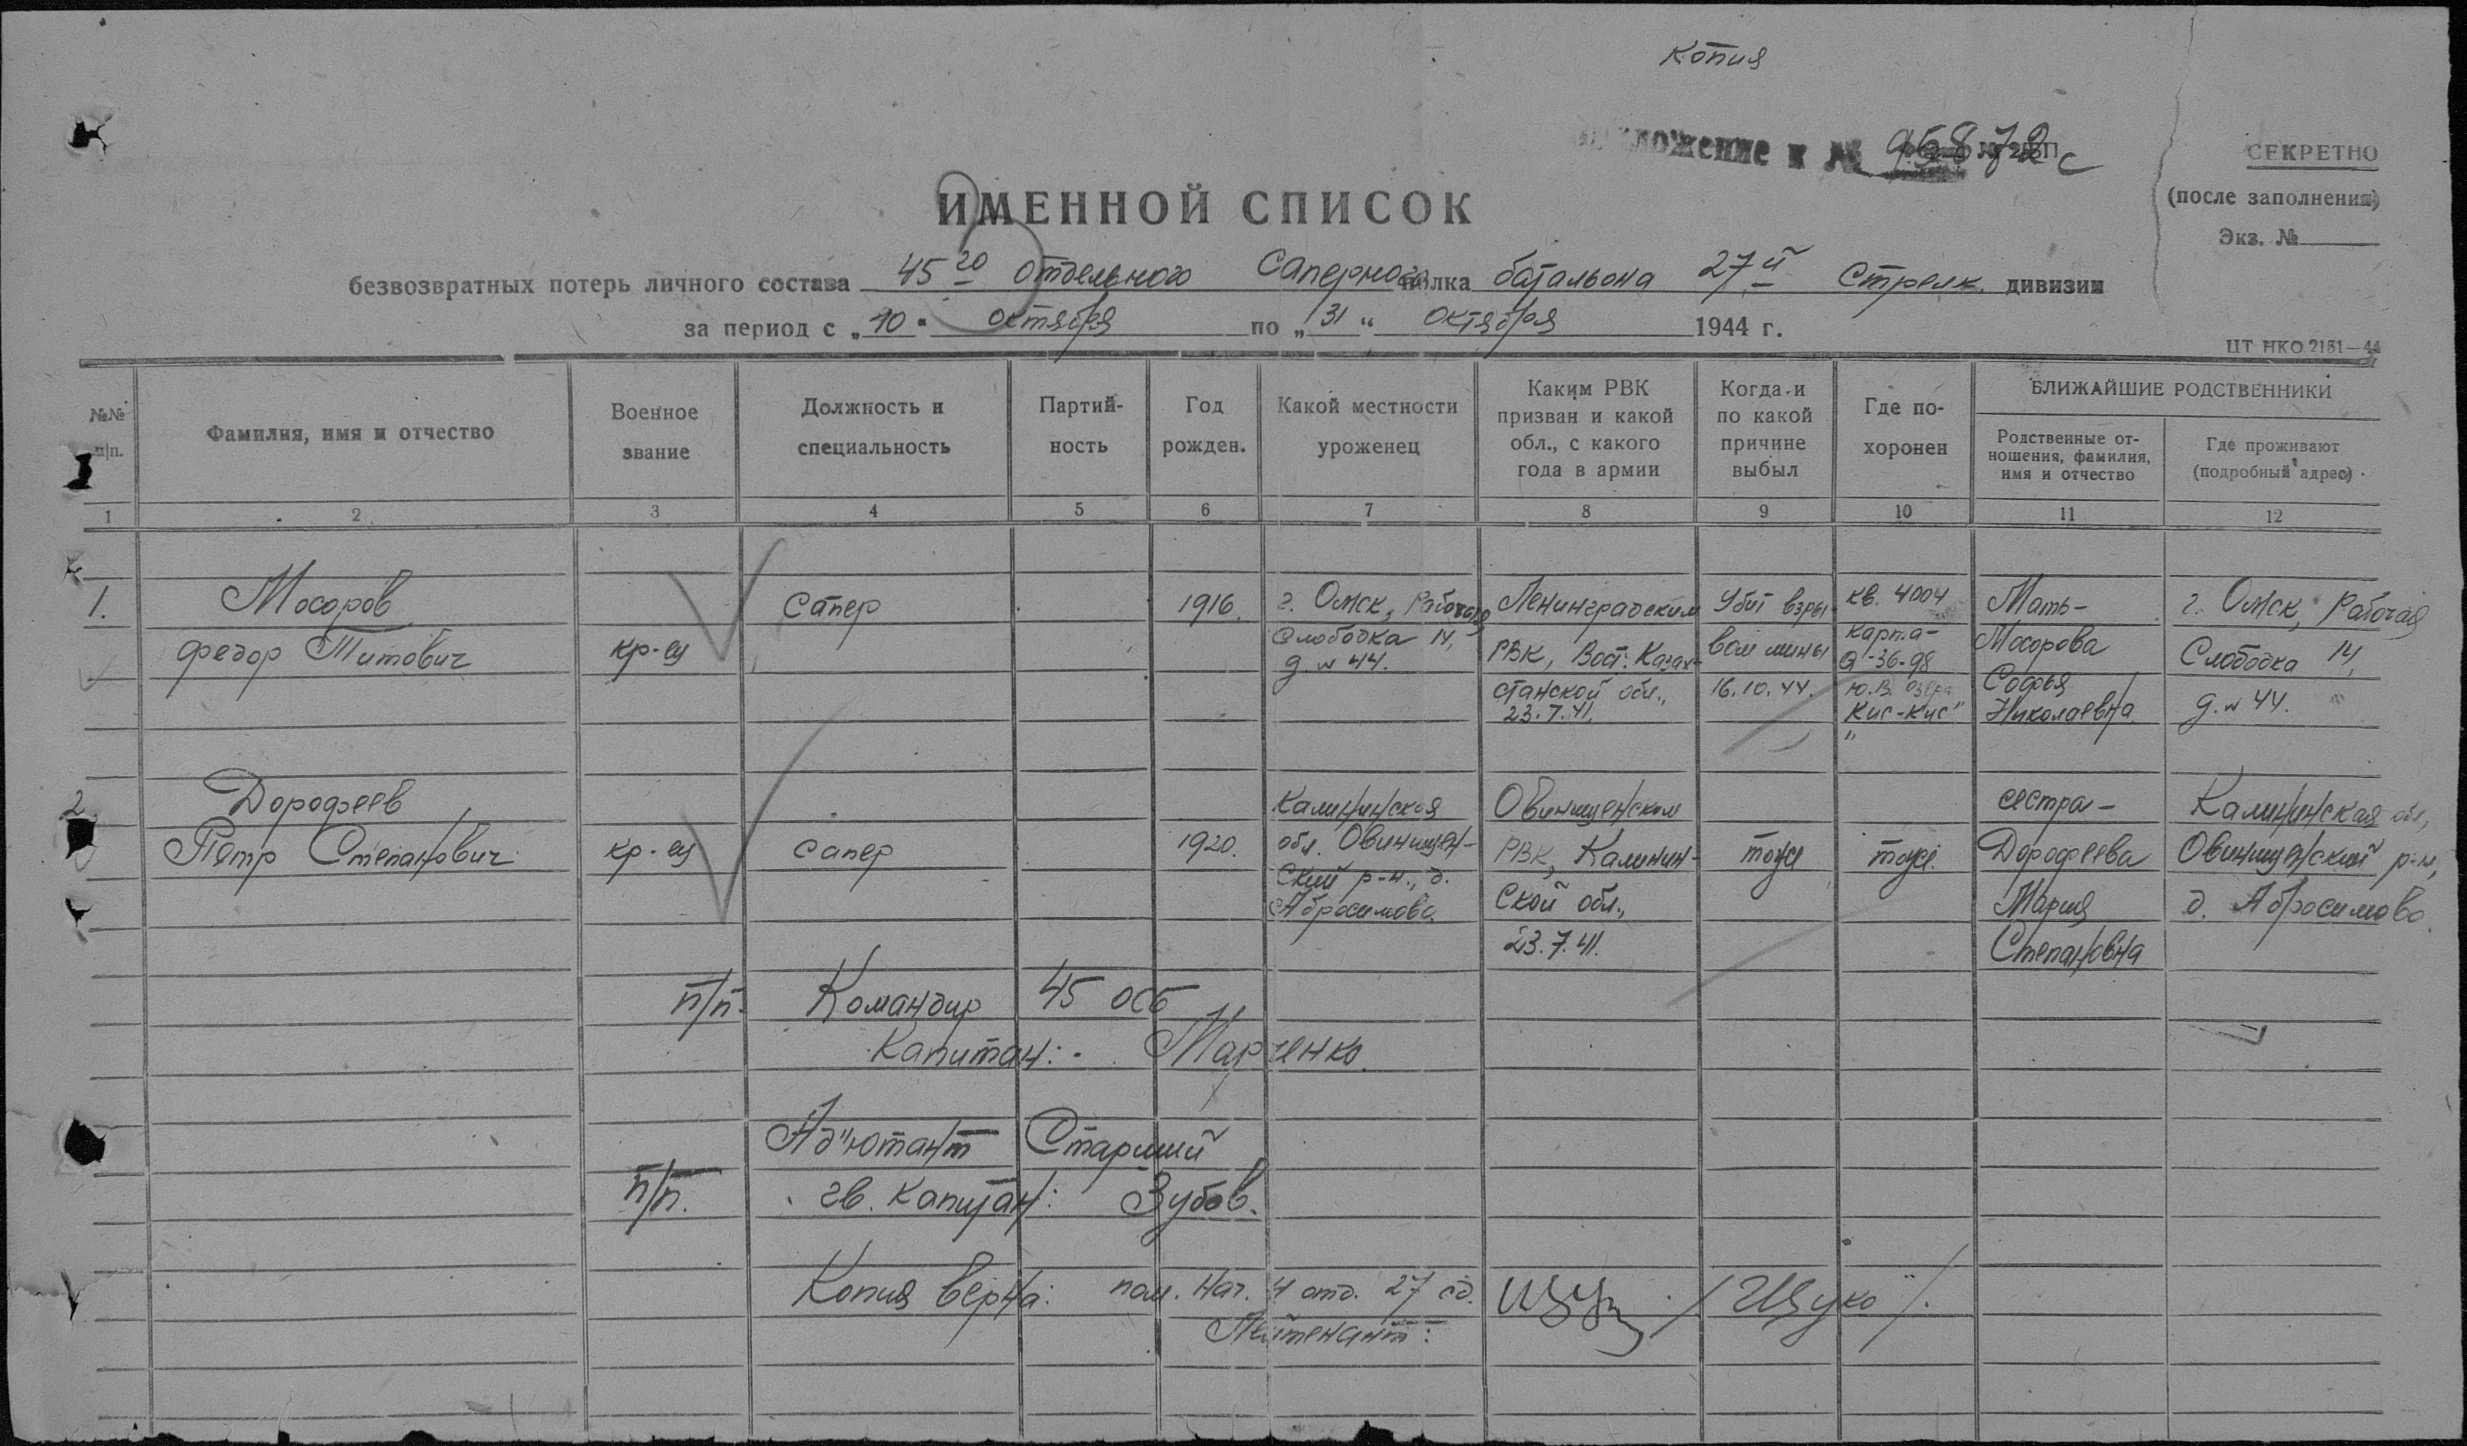 Копия
ложение к № 95872с
СЕКРЕТНО
(после заполнения)
Экз. №
ИМЕННОЙ СПИСОК
безвозвратных потерь личного состава 45го отдельного Саперного полка батальона 27й Стрелк. дивизии
за период с „10" октября по „31" октября 1944 г.
ЦТ НКО 2151—44
№№ п/п.
Фамилия, имя и отчество
Военное звание
Должность и специальность
Партий-
ность
Год рожден.
Какой местности уроженец
Каким РВК
призван и какой
обл., с какого
года в армии
Когда и
по какой
причине
выбыл
Где по-
хоронен
БЛИЖАЙШИЕ РОДСТВЕННИКИ
Родственные от-
ношения, фамилия,
имя и отчество
Где проживают
(подробный адрес)
1 2 3 4 5 6 7 8 9 10 11 12
1.
Мосоров
Федор Титович
кр-ец
сапер
1916.
г. Омск, Рабочая
Слободка 14,
д. № 44.
Ленинградским
РВК, Вост. Казах-
станской обл.,
23.7.41.
Убит взры-
вом мины
16.10.44.
кв. 4004
карта-
Q-36-98
ю.в. озера
„Кис-Кис"
Мать-
Мосорова
Софья
Николаевна
г. Омск, Рабочая
Слободка 14,
д. № 44.
2
Дорофеев
Петр Степанович
кр-ец
сапер
1920.
Калининская
обл. Овинищен-
ский р-н., д.
Абросимово.
Овинищенским
РВК, Калинин-
ской обл.,
23.7.41.
тоже
тоже.
сестра-
Дорофеева
Мария
Степановна
Калининская обл,
Овинищенский р-н,
д. Абросимово.
п/п. Командир 45 осб
Капитан: Марченко.
Ад"ютант Старший
п/п. гв. капитан: Зубов.
Копия верна: пом. нач. 4 отд. 27 сд. /Щуко/.
Лейтенант: